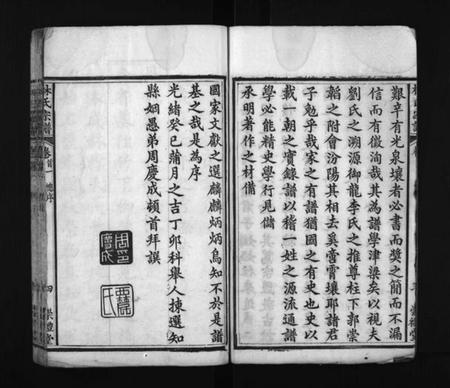 艱辛有光泉壤者必書而獎之簡而不漏
信而有徵洵哉其為譜學津梁矣以視夫
劉氏之溯源御龍李氏之推尊柱下郭崇
韜之附會汾陽其相去奚啻霄壤耶諸君
子勉乎哉家之有譜猶國之有史也史以
載一朝之實錄譜以稽一姓之源流通譜
學必能精史學行見儲
承明著作之材備
國家文獻之選麟麟炳炳烏知不於是譜
基之哉是為序
光緒癸巳蒲月之吉丁卯科舉人揀選知
縣姻愚弟周慶成頓首拜譔
林氏宗譜
卷首
總序
四
崇禮堂